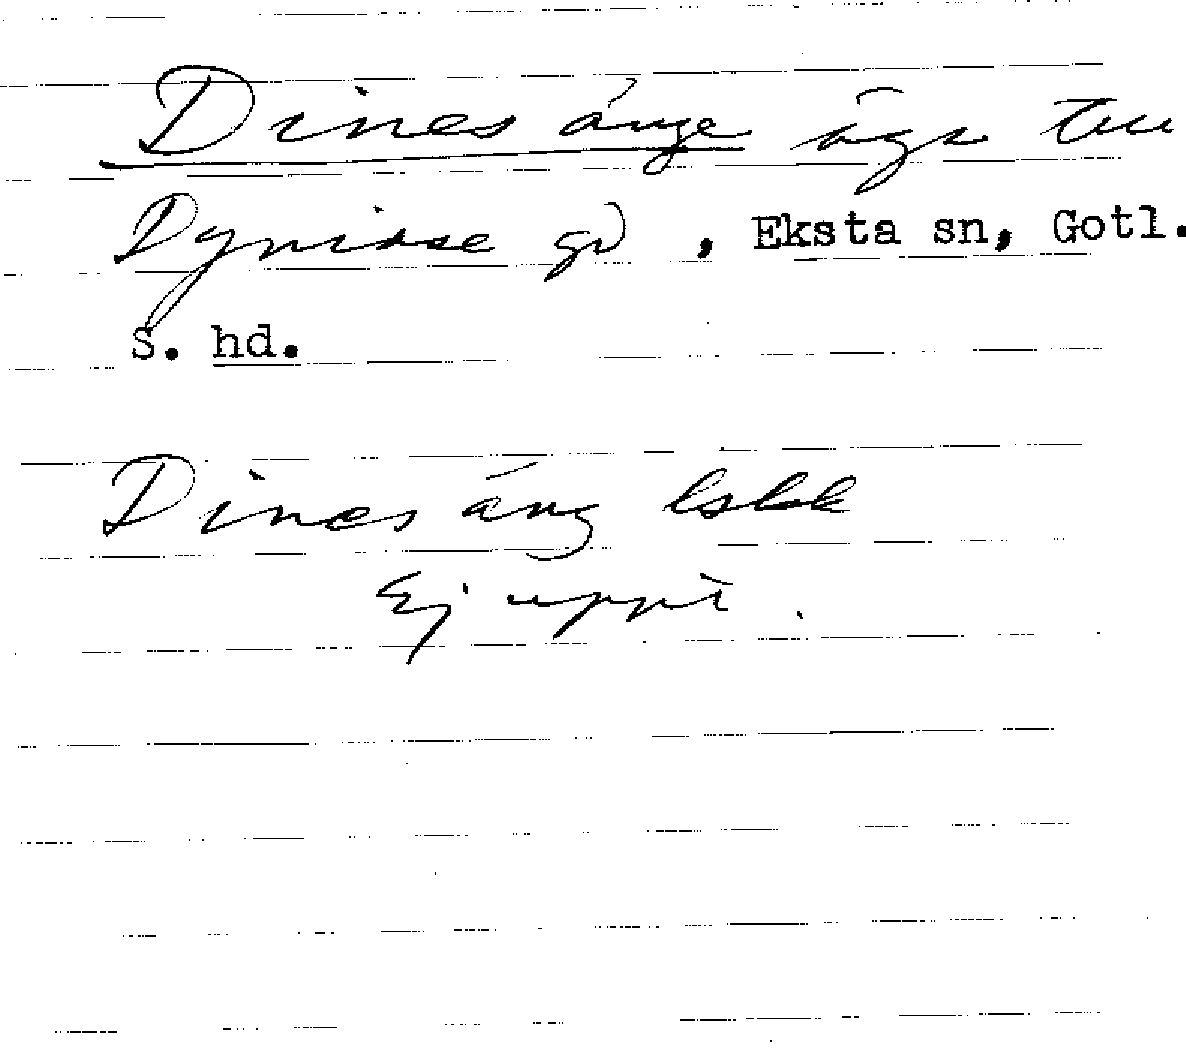 Dines änge äga till
Dyrisse gd, Eksta sn, Gotl.
S. hd.
Dines äng lskk
Ej uppt.